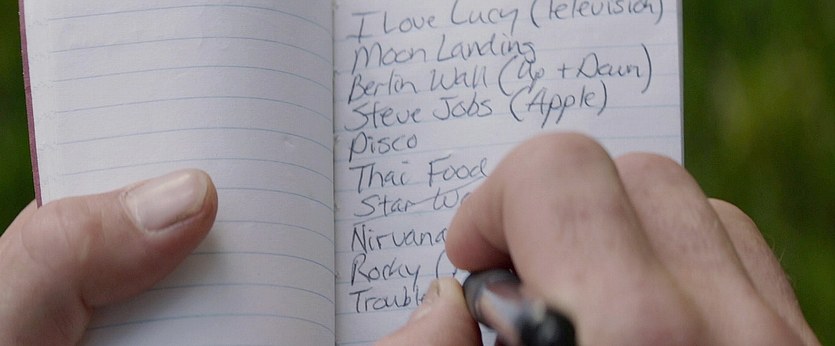 I Love Lucy (Television)
Moon Landing
Berlin Wall (Up + Down)
Steve Jobs (Apple)
Disco
Thai Food
Star
Nirvana
Rocky (